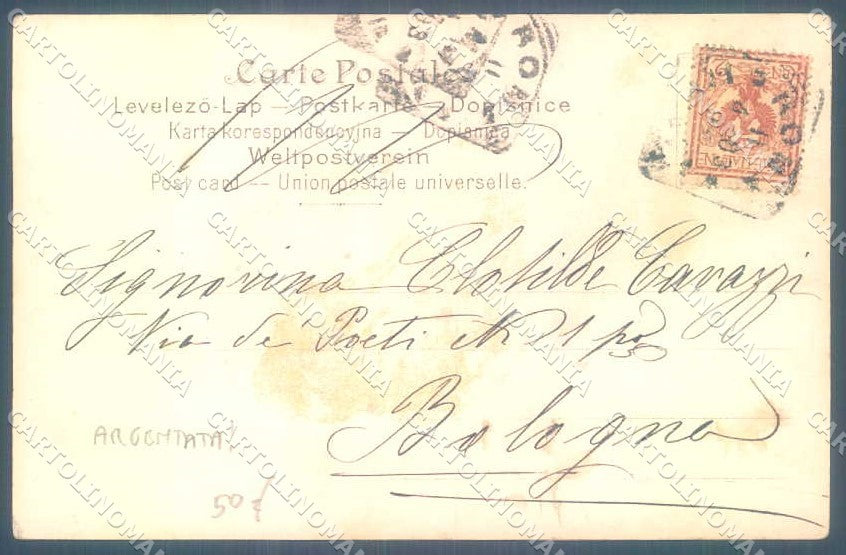 Carte Postale
Levelező-Lap — Postkarte — Dopisnice
Karta korespondencyjna — Dopisnica
Weltpostverein
Post card -- Union postale universelle.
ROMA
Signorina Clotilde Cavazzi
Via de' Poeti N 1 po
Bologna
ARGENTATA
50
CARTOLINOMANIA